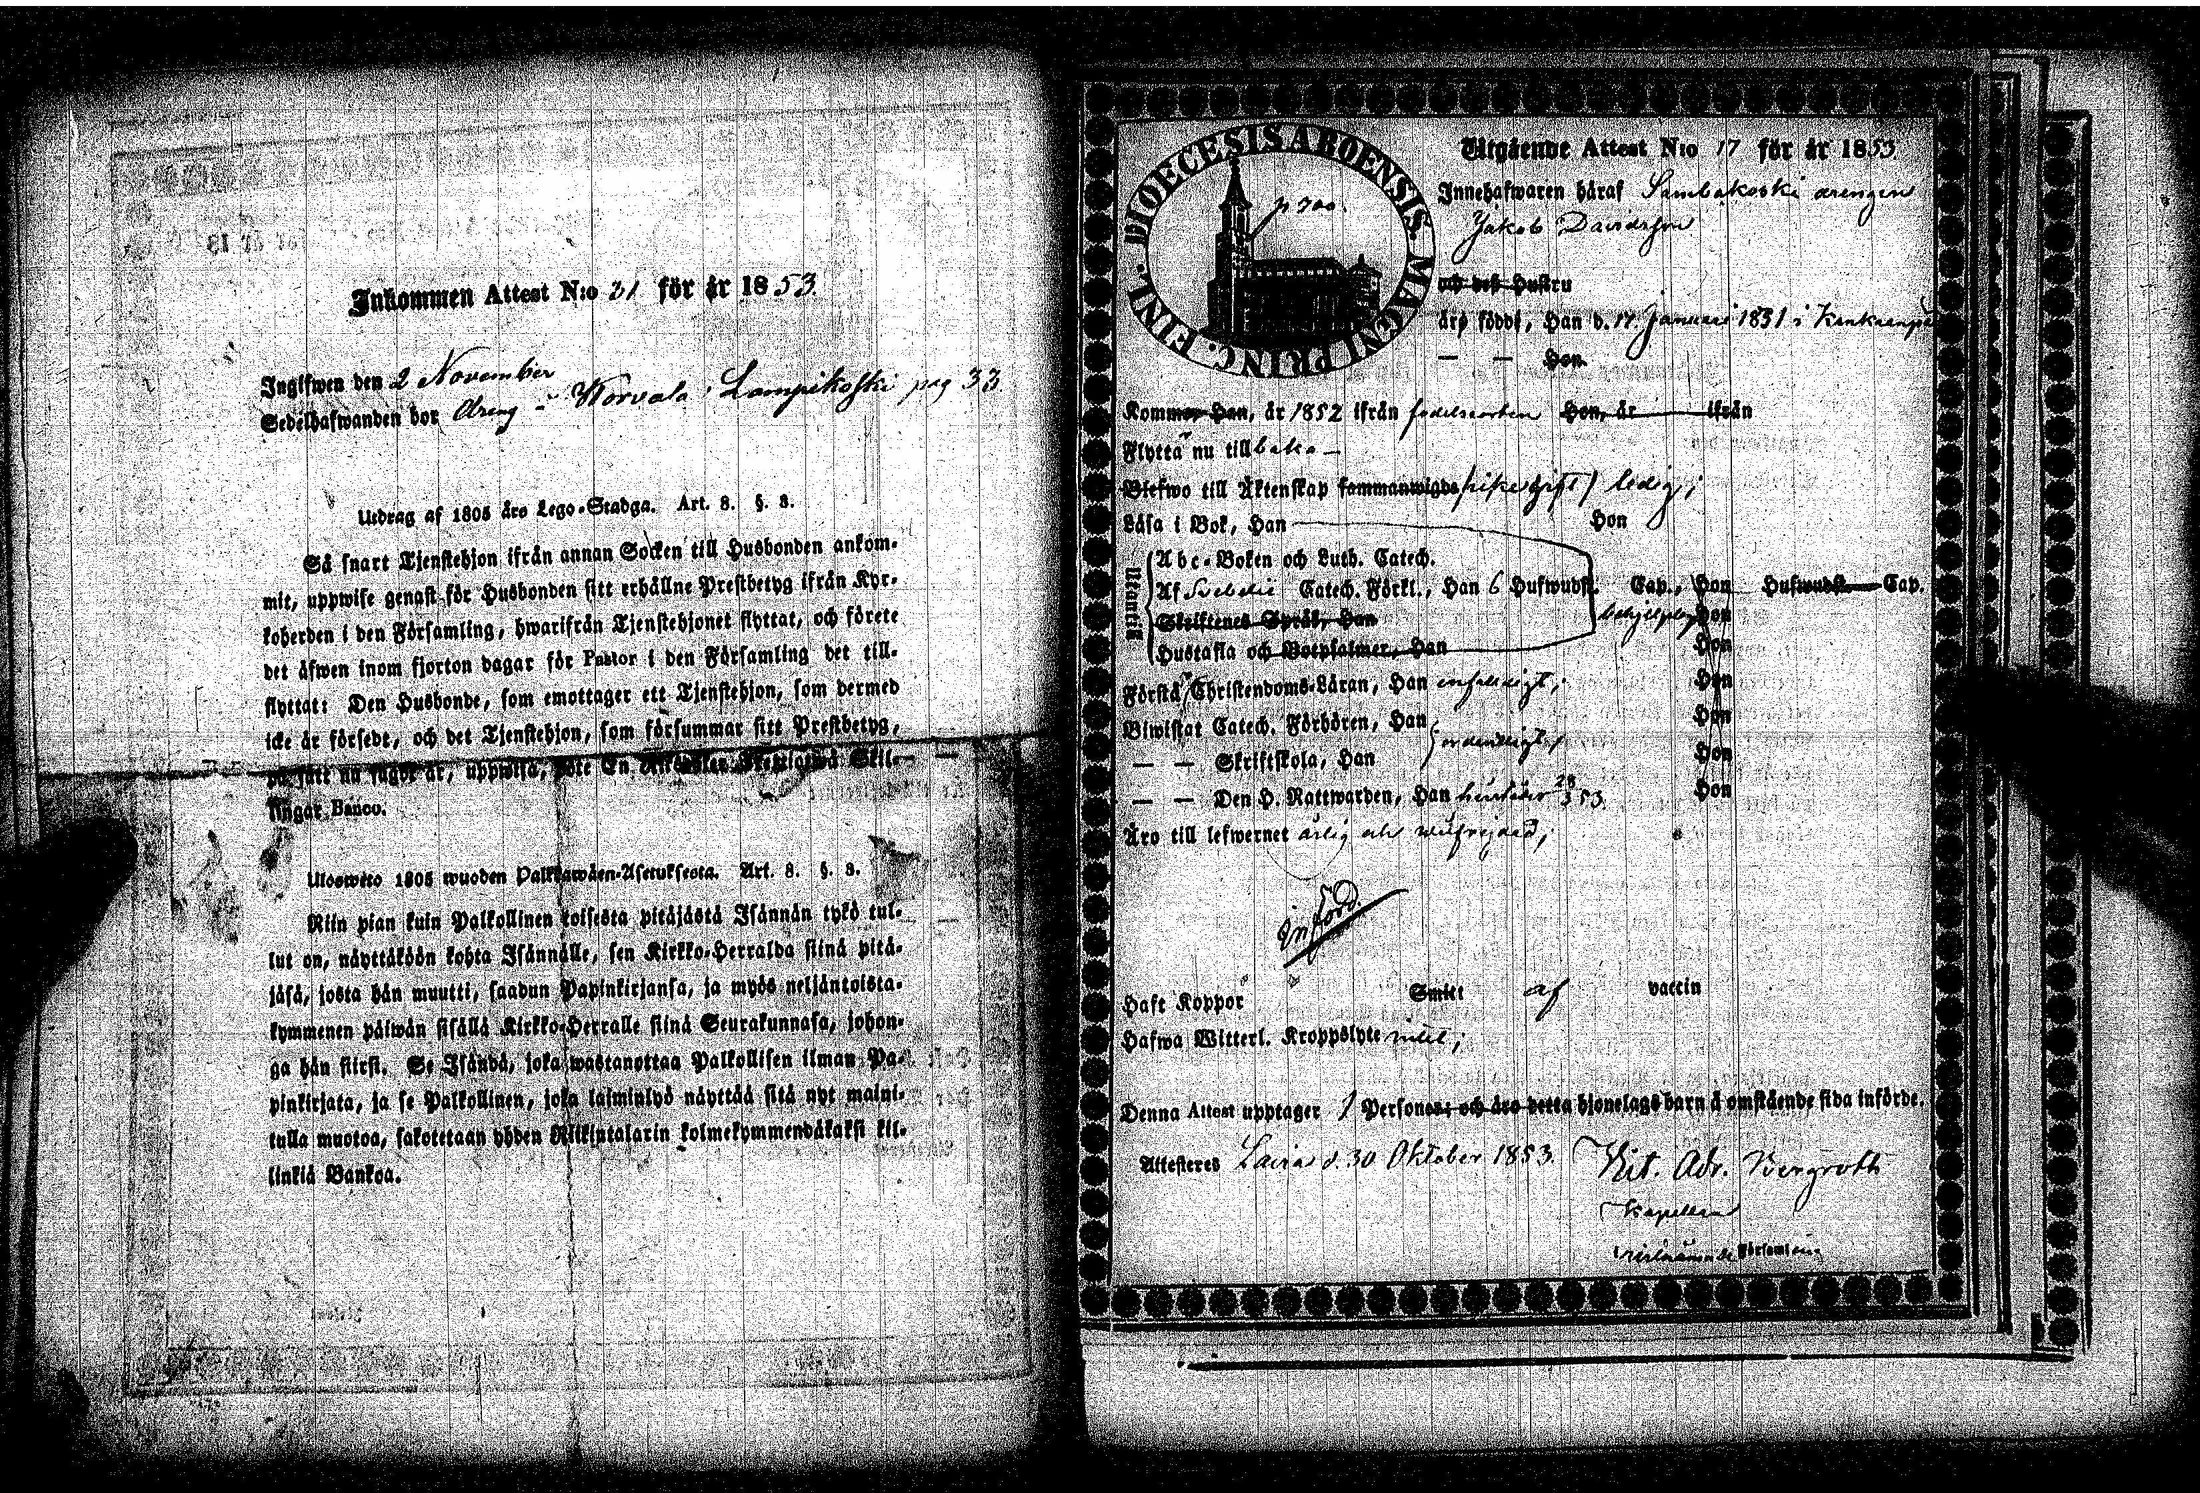 Inkommen Attest N:o 31 för år 1853
Ingifwen den 2 November
Sedelhafwanden bor dräng i Korvala, Lampikoski pag 33
Utdrag af 1805 års Lego-Stadga. Art. 8. §. 3.
Så snart Tjenstehjon ifrån annan Socken till Husbonden ankom-
mit, uppwise genast för Husbonden sitt erhållne Prestbetyg ifrån Kyr-
koherden i den Församling, hwarifrån Tjenstehjonet flyttat, och förete
det äfwen inom fjorton dagar för Pastor i den Församling det till-
flyttat: Den Husbonde, som emottager ett Tjenstehjon, som dermed
icke är försedt, och det Tjenstehjon, som försummar sitt Prestbetyg,
på sätt nu sagdt är, uppwisa, böte En Riksdaler Trettiotwå Skil-
lingar Banco.
Ulosweto 1805 wuoden Palkkawäen-Asetuksesta. Art. 8. §. 3.
Niin pian kuin Palkollinen toisesta pitäjästä Isännän tykö tul-
lut on, näyttäköön kohta Isännälle, sen Kirkko-Herralda siinä pitä-
jäsä, josta hän muutti, saadun Papinkirjansa, ja myös neljäntoista-
kymmenen päiwän sisällä Kirkko-Herralle siinä Seurakunnasa, johon-
ga hän siirsi. Se Isändä, joka wastanottaa Palkollisen ilman Pa-
pinkirjata, ja se Palkollinen, joka laiminlyö näyttää sitä nyt maini-
tulla muotoa, sakotetaan yhden Riikintalarin kolmekymmendäkaksi kil-
linkiä Bankoa.
DIOECESIS ABOENSIS. MAGNI PRINC. FINL.
p 300.
Utgående Attest N:o 17 för år 1853
Innehafwaren häraf Sambakoski drengen
Jakob Davidsson
och dess Hustru
äro födde, Han d. 17 Januari 1831 i Kankaanpä
— — Hon
Kommer Han, år 1852 ifrån födelseorten Hon, år ifrån
Flytta nu tillbaka —
Blefwo till Äktenskap sammanwigde ledig;
Läsa i Bok, Han Hon
Utantill
Abc-Boken och Luth. Catech.
Af Svebelii Catech. Förkl., Han 6 Hufwudst. Cap., Hon Hufwudst. Cap.
Skriftenes Språk, Han behjelpligt Hon
Hustafla och Botpsalmer, Han Hon
Förstå Christendoms-Läran, Han enfaldigt; Hon
Biwistat Catech. Förhören, Han Hon
— — Skriftskola, Han ordentligt; Hon
— — Den H. Nattwarden, Han 28/3 53. Hon
Äro till lefwernet ärlig och wälfrejdad;
Införd.
Haft Koppor Smitt af vaccin
Hafwa Witterl. Kroppslyte intet;
Denna Attest upptager 1 Personer: och äro detta hjonelags barn å omstående sida införde.
Attesteres Lavia d. 30 Oktober 1853. Vit. Adr. Bergroth
Kapellan
Församling